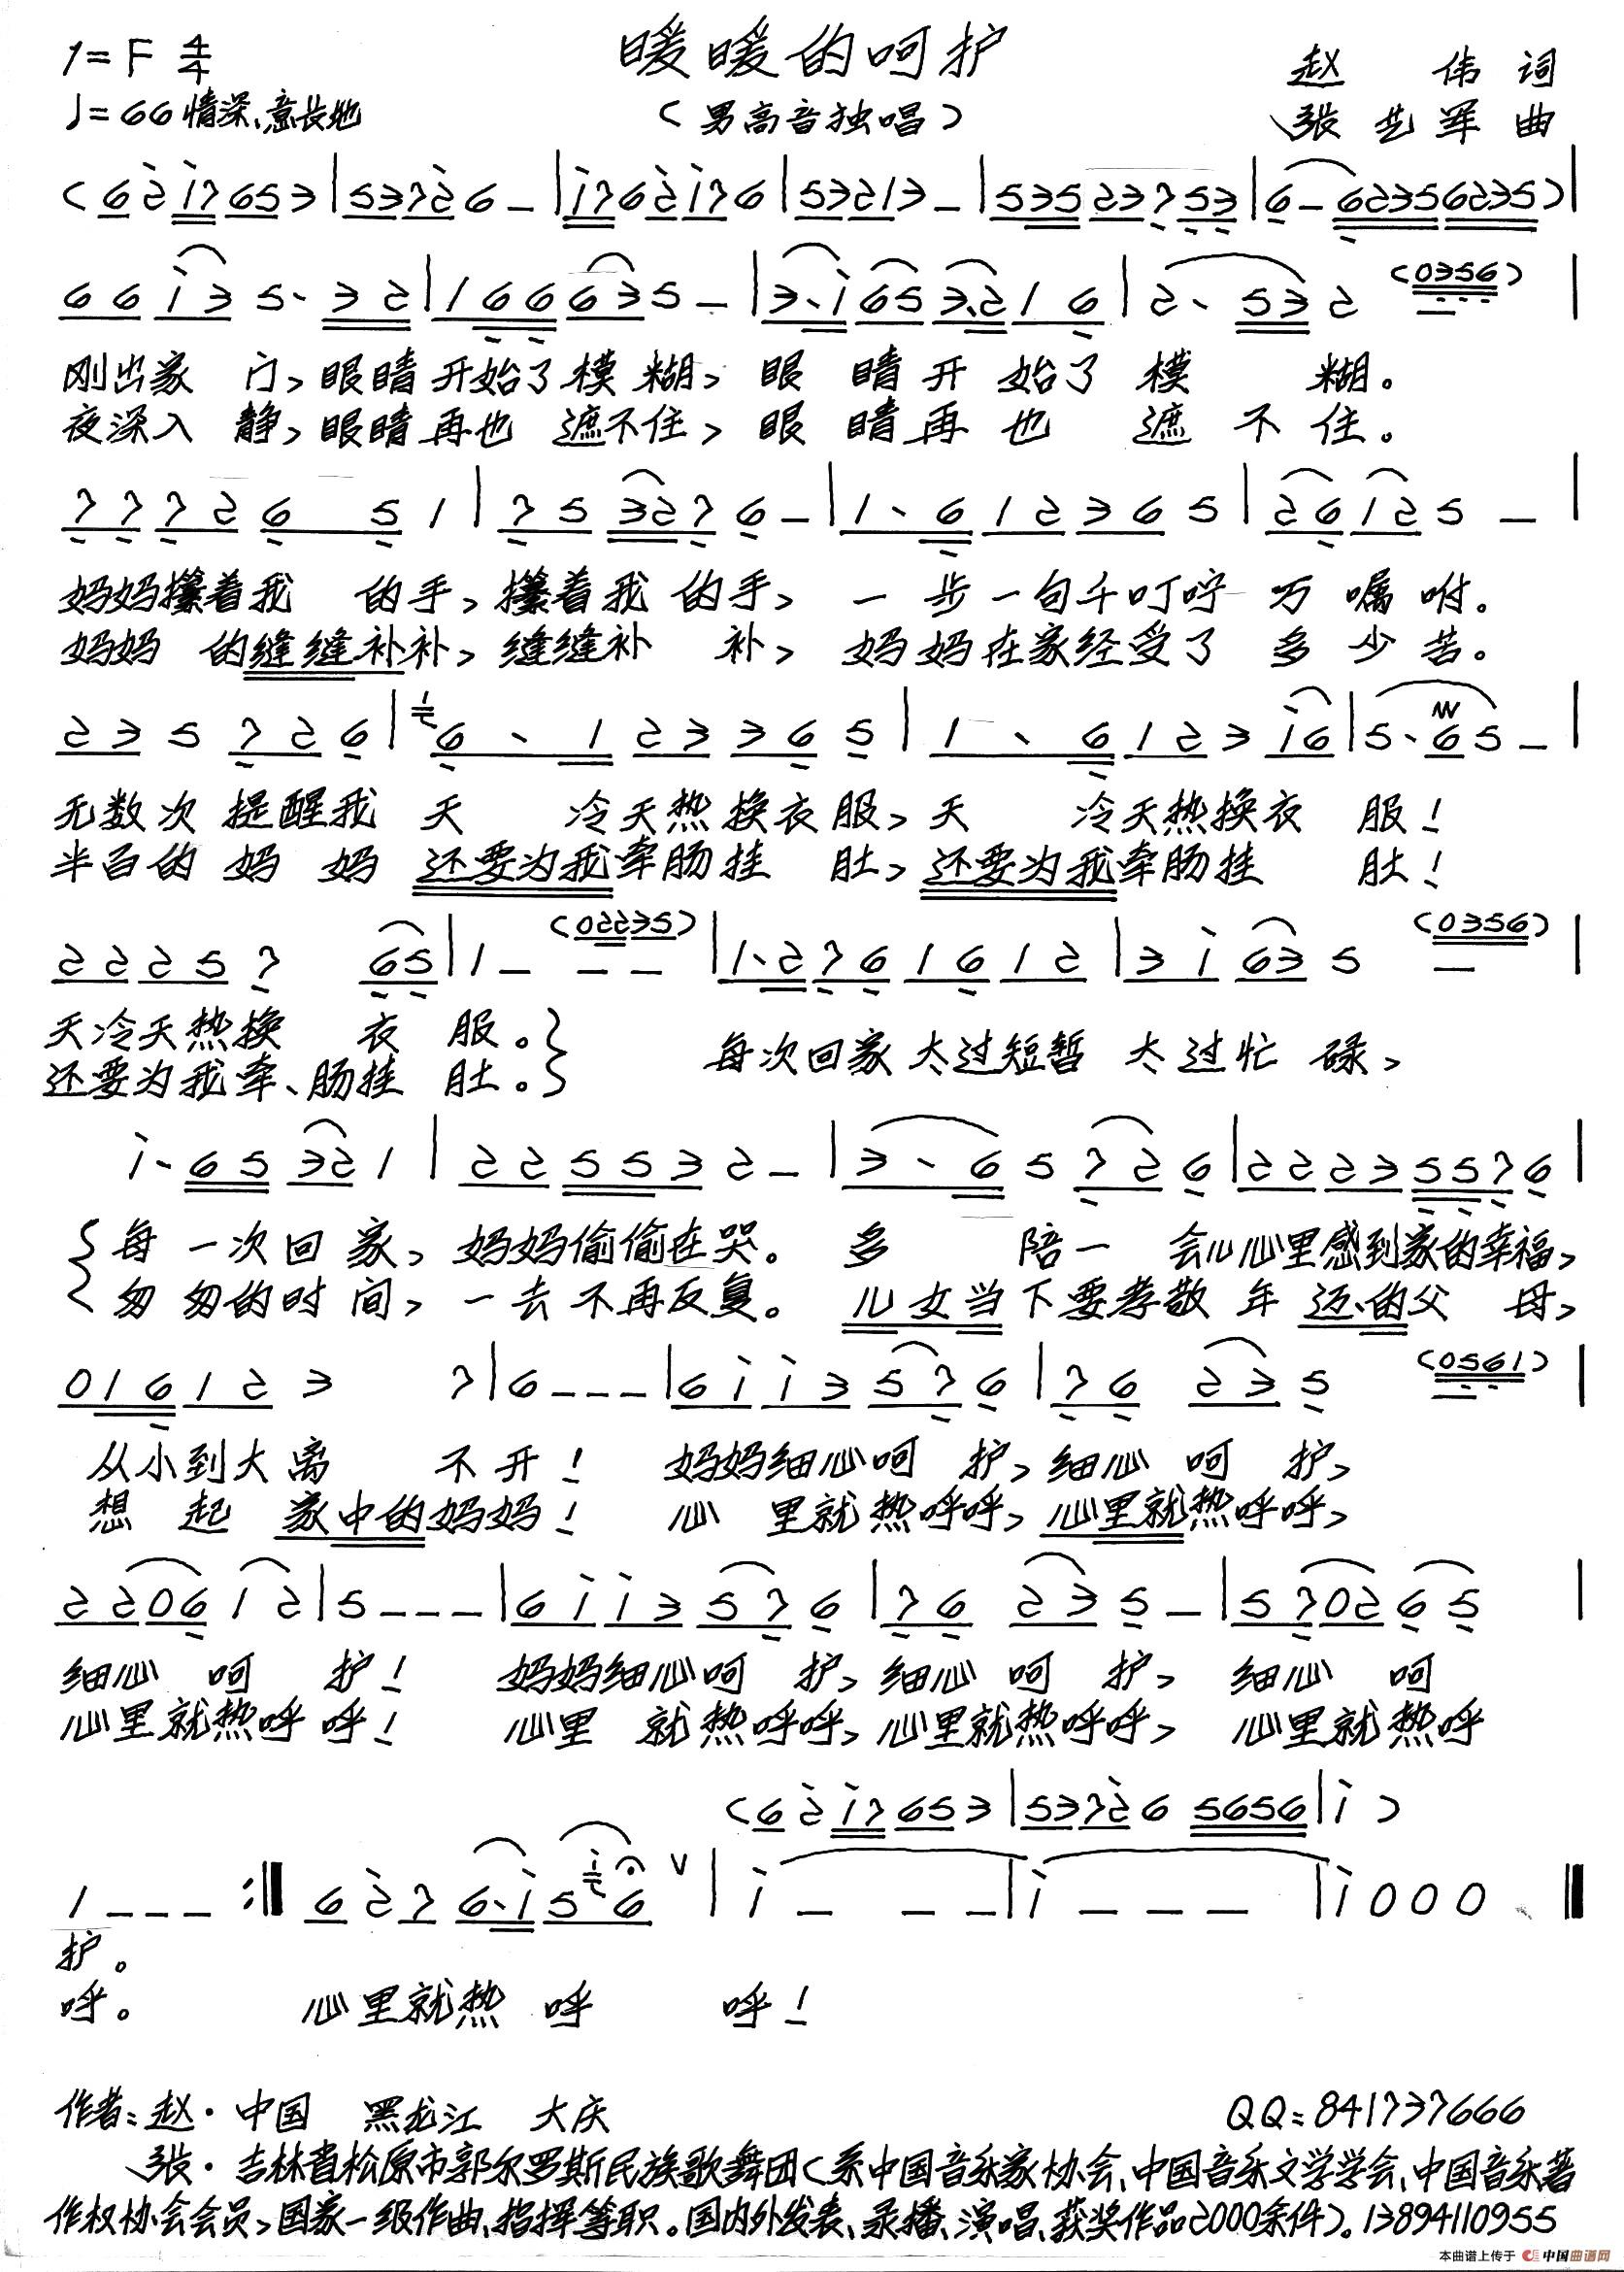 暖暖的呵护
1=F 4/4
赵 伟 词
♩=66 情深、意长地
(男高音独唱)
张艺军 曲
(6 2̇ i̇7 653|537 2̇ 6 -|i̇76 2̇ i̇76|53213 -|53523753|6 - 62356235)|
6 6 i̇ 3 5· 3 2|1 6 6 6 3 5 -|3· i̇ 6 5 3· 2 1 6|2· 5 3 2 (0356)|
刚出家 门,眼睛开始了模 糊,眼 睛开 始了 模 糊。
夜深入 静,眼睛再也 遮不住,眼 睛再 也 遮 不 住。
7 7 7 2 6 5 1|7 5 3 2 7 6 -|1· 6 1 2 3 6 5|2 6 1 2 5 -|
妈妈攥着我 的手,攥着我的手,一步一句千叮咛 万嘱咐。
妈妈 的缝缝补补,缝缝补 补,妈妈在家经受了 多少苦。
2 3 5 7 2 6|6· 1 2 3 3 6 5|1· 6 1 2 3 i̇ 6|5· 6 5 -|
无数次 提醒我 天 冷天热换衣服,天 冷天热换衣 服!
半百的 妈 妈 还要为我牵肠挂 肚,还要为我牵肠挂 肚!
2 2 2 5 7 6 5|1 - - - (02235)|1· 2 7 6 1 6 1 2|3 i̇ 6 3 5 - (0356)|
天冷天热换 衣 服。
还要为我牵、肠挂 肚。
每次回家太过短暂 太过忙 碌,
i̇· 6 5 3 2 1|2 2 5 5 3 2 -|3· 6 5 7 2 6|2 2 2 3 5 5 7 6|
每 一次回家,妈妈偷偷在哭。多 陪一 会儿心里感到家的幸福,
匆匆的时间,一去不再反复。儿女当下要孝敬 年迈、的父 母,
0 1 6 1 2 3 7|6 - - -|6 i̇ i̇ 3 5 7 6|7 6 2 3 5 - (0561)|
从小到大离 不开! 妈妈细心呵 护,细心 呵 护,
想 起 家中的妈妈! 心 里就热呼呼,心里就热呼呼,
2 2 0 6 1 2|5 - - -|6 i̇ i̇ 3 5 7 6|7 6 2 3 5 -|5 7 0 2 6 5|
细心 呵 护! 妈妈细心呵 护,细心 呵 护, 细心 呵
心里就热呼呼! 心里 就热呼呼,心里就热呼呼, 心里就热呼
(6 2̇ i̇7 653|537 2̇ 6 5656|i̇)
1 - - - :‖ 6 2̇ 7 6· i̇ 5 6 ∨|i̇ - - -|i̇ - - -|i̇ 0 0 0‖
护。
呼。 心里就热 呼 呼!
作者:赵·中国 黑龙江 大庆
QQ:841737666
张·吉林省松原市郭尔罗斯民族歌舞团(系中国音乐家协会、中国音乐文学学会、中国音乐著
作权协会会员,国家一级作曲、指挥等职。国内外发表、录播、演唱、获奖作品2000余件)。13894110955
本曲谱上传于 中国曲谱网